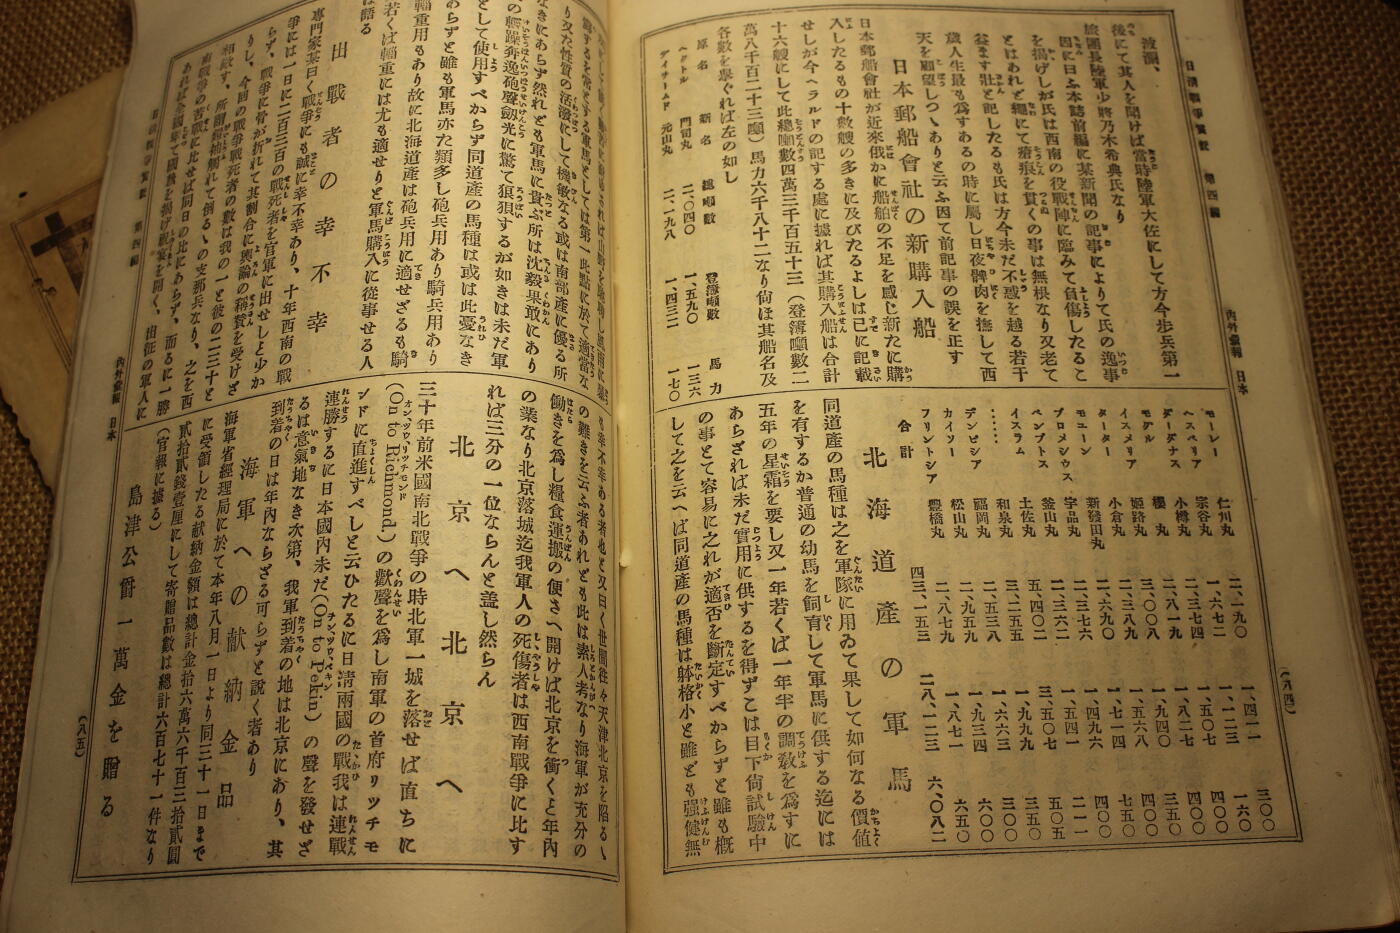 日清戰爭實記 第四編
內外彙報 日本
(八四)
波瀾、
後にて其人を聞けば當時陸軍大佐にして方今步兵第一
旅團長陸軍少將乃木希典氏なり
因に曰ふ本誌前編に某新聞の記事によりて氏の逸事
を揚げしが氏は西南の役戰陣に臨みて負傷したるこ
とはあれど繩にて瘡痕を貫くの事は無根なり又老て
益ます壯と記したるも氏は方今未だ不惑を越る若干
歲人生最も爲すあるの時に屬し日夜髀肉を撫して西
天を願望しつゝありと云ふ因て前記事の誤を正す
日本郵船會社の新購入船
日本郵船會社が近來俄かに船舶の不足を感じ新たに購
入したるもの十數艘の多きに及びたるよしは已に記載
せしが今ヘラルドの記する處に據れば其購入船は合計
十六艘にして此總噸數四萬三千百五十三(登簿噸數二
萬八千百二十三噸)馬力六千八十二なり尙ほ其船名及
各數を擧ぐれば左の如し
原名 新名 總噸數 登簿噸數 馬力
ヘクトル 門司丸 二、〇四〇 一、五九〇 一三六
元山丸 二、一九八 一、四三二 一七〇
モーレー 仁川丸 二、一九〇 一、四二一 三〇〇
ヘスペリア 宗谷丸 一、六七二 一、一二三 一六〇
ダーダナス 小樽丸 二、三七四 一、五〇七 四〇〇
モデル 櫻丸 二、八一九 一、八二七 四〇〇
イスメリア 姬路丸 三、〇〇八 一、九四〇 三五〇
ターター 小倉丸 二、三八九 一、五六八 四〇〇
新發田丸 二、六九〇 一、七一四 七五〇
ミューン 宇品丸 二、三七六 一、四九六 四〇〇
プロメシウス 釜山丸 二、三六二 一、五四一 二一一
ペンプトス 土佐丸 五、四〇二 三、五〇七 五〇五
イスラム 和泉丸 三、二五五 一、九九九 三五〇
…… 福岡丸 二、五三八 一、六六三 三〇〇
デンビシア 松山丸 二、九五九 一、九三四 六〇〇
カイソー 豐橋丸 二、八七九 一、八七一 六五〇
フリントシア
合計 四三、一五三 二八、一二三 六、〇八二
北海道產の軍馬
同道產の馬種は之を軍隊に用ゐて果して如何なる價値
を有するか普通の幼馬を飼育して軍馬に供する迄には
五年の星霜を要し又一年若くば一年半の調敎を爲すに
あらざれば未だ實用に供するを得ずこは目下尙試驗中
の事とて容易に之れが適否を斷定すべからずと雖も槪
して之を云へば同道產の馬種は躰格小と雖ども强健無
るを常とする軍馬としては第一此點に於て適當な
り又た性質の活潑にして機敏なる或は南部產に優る所
なきにあらず然れども軍馬に貴ぶ所は沈毅果敢にあり
の輕躁奔逸砲聲劔光に驚て狼狽するが如きは未だ軍
として使用すべからず同道產の馬種は或は此憂なき
あらずと雖も軍馬亦た類多し砲兵用あり騎兵用あり
輜重用もあり故に北海道產は砲兵用に適せざるも騎
若くば輜重には尤も適せりと軍馬購入に從事せる人
は語る
出戰者の幸不幸
專門家某曰く戰爭にも誠に幸不幸あり、十年西南の戰
爭には一日に二百三百の戰死者を官軍に出せしと少か
らず、戰爭に骨が折れて其割合に輿論の稱贊を受けざ
りし、今回の戰爭戰死者の數は我の一と彼の二三十と
相敵す、所謂袖觸れて倒るゝの支那兵なり、之を西
南戰爭の苦戰に比せば同日の比にあらず、而るに一勝
あれば全國擧て國旗を揭げ祝宴を開く、出征の軍人に
も幸不幸ある者也と又曰く世間往々天津北京を陷るゝ
の難きを云ふ者あれども此は素人考なり海軍が充分の
働きを爲し糧食運搬の便さへ開けば北京を衝くと年內
の業なり北京落城迄我軍人の死傷者は西南戰爭に比す
れば三分の一位ならんと蓋し然らん
北京へ北京へ
三十年前米國南北戰爭の時北軍一城を落せば直ちに
(On to Richmond,)の歡聲を爲し南軍の首府リッチモ
ンドに直進すべしと云ひたるに日清兩國の戰我は連戰
連勝するに日本國內未だ(On to Pekin)の聲を發せざ
るは意氣地なき次第、我軍到着の地は北京にあり、其
到着の日は年內ならざる可らずと說く者あり
海軍への献納金品
海軍省經理局に於て本年八月一日より同三十一日まで
に受領したる献納金額は總計金拾六萬六千百三拾貳圓
貳拾貳錢壹厘にして寄贈品數は總計六百七十一件なり
(官報に據る)
島津公爵一萬金を贈る
日清戰爭實記 第四編
內外彙報 日本
(八五)